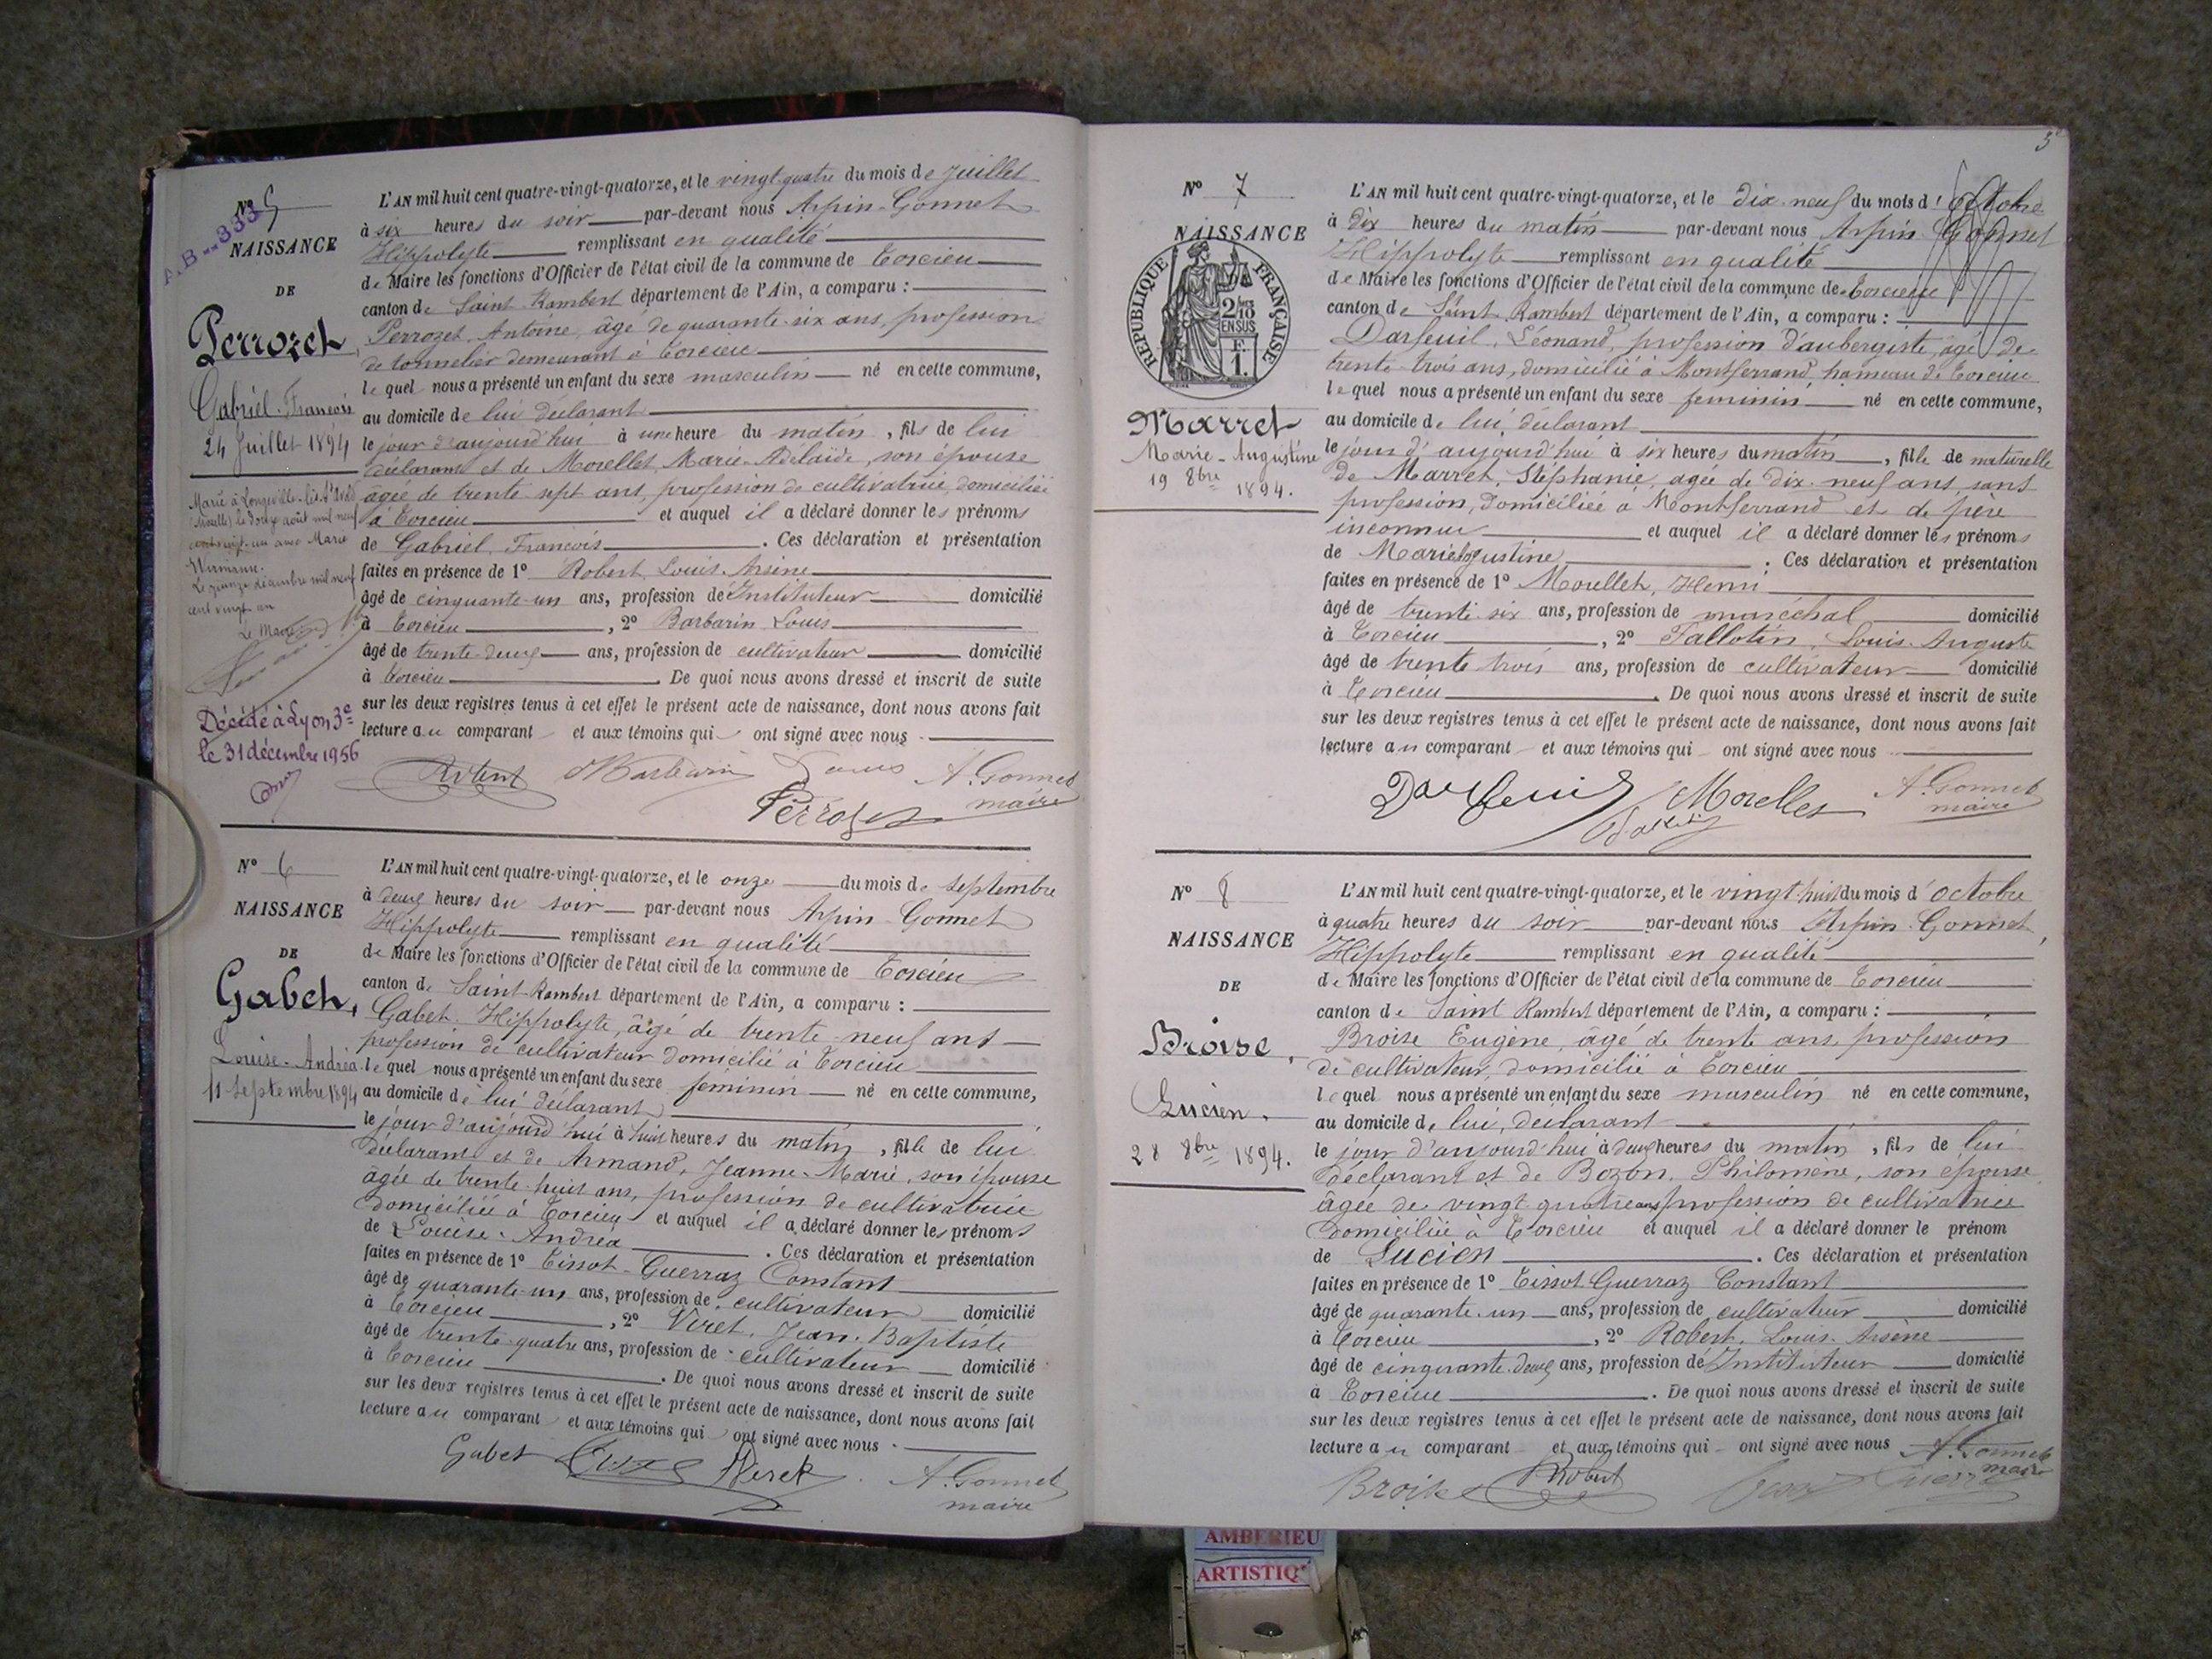 A.B - 333
N° 5
NAISSANCE
DE
Perrozet,
Gabriel-François
24 Juillet 1894
Marié à Longeville-lès-St Avold
(Moselle) le douze août mil neuf
cent vingt-un avec Marie
Le quinze décembre mil neuf
cent vingt un
Le Maire
Décédé à Lyon 3e
le 31 décembre 1956
L'AN mil huit cent quatre-vingt-quatorze, et le vingt-quatre du mois de Juillet
à six heures du soir par-devant nous Arpin-Gonnet
Hippolyte remplissant en qualité
de Maire les fonctions d'Officier de l'état civil de la commune de Torcieu
canton de Saint-Rambert département de l'Ain, a comparu :
Perrozet Antoine, âgé de quarante-six ans, profession
de tonnelier demeurant à Torcieu
lequel nous a présenté un enfant du sexe masculin né en cette commune,
au domicile de lui déclarant
le jour d'aujourd'hui à une heure du matin, fils de lui
déclarant et de Morellet, Marie-Adelaïde, son épouse
âgée de trente-sept ans, profession de cultivatrice, domiciliée
à Torcieu et auquel il a déclaré donner les prénoms
de Gabriel, François. Ces déclaration et présentation
faites en présence de 1° Robert, Louis-Arsène
âgé de cinquante-un ans, profession de Instituteur domicilié
à Torcieu, 2° Barbarin Louis
âgé de trente-deux ans, profession de cultivateur domicilié
à Torcieu. De quoi nous avons dressé et inscrit de suite
sur les deux registres tenus à cet effet le présent acte de naissance, dont nous avons fait
lecture au comparant et aux témoins qui ont signé avec nous.
Robert Barbarin Louis A. Gonnet
Perrozet maire
N° 6
NAISSANCE
DE
Gabet,
Louise-Andréa
11 Septembre 1894
L'AN mil huit cent quatre-vingt-quatorze, et le onze du mois de septembre
à deux heures du soir par-devant nous Arpin-Gonnet
Hippolyte remplissant en qualité
de Maire les fonctions d'Officier de l'état civil de la commune de Torcieu
canton de Saint-Rambert département de l'Ain, a comparu :
Gabet Hippolyte, âgé de trente-neuf ans
profession de cultivateur domicilié à Torcieu
lequel nous a présenté un enfant du sexe féminin né en cette commune,
au domicile de lui déclarant
le jour d'aujourd'hui à huit heures du matin, fille de lui
déclarant et de Armand, Jeanne-Marie, son épouse
âgée de trente-huit ans, profession de cultivatrice
domiciliée à Torcieu et auquel il a déclaré donner les prénoms
de Louise-Andréa. Ces déclaration et présentation
faites en présence de 1° Tissot-Guerraz Constant
âgé de quarante-un ans, profession de cultivateur domicilié
à Torcieu, 2° Veret, Jean-Baptiste
âgé de trente-quatre ans, profession de cultivateur domicilié
à Torcieu. De quoi nous avons dressé et inscrit de suite
sur les deux registres tenus à cet effet le présent acte de naissance, dont nous avons fait
lecture au comparant et aux témoins qui ont signé avec nous.
Gabet A. Gonnet
maire
3
N° 7
NAISSANCE
RÉPUBLIQUE FRANÇAISE
2/10 EN SUS
F. 1.
Marret
Marie-Augustine
19 8bre 1894.
L'AN mil huit cent quatre-vingt-quatorze, et le dix-neuf du mois d'Octobre
à dix heures du matin par-devant nous Arpin-Gonnet
Hippolyte remplissant en qualité
de Maire les fonctions d'Officier de l'état civil de la commune de Torcieu
canton de Saint-Rambert département de l'Ain, a comparu :
Darfeuil, Léonard, profession d'aubergiste, âgé de
trente-trois ans, domicilié à Montferrand, hameau de Torcieu
lequel nous a présenté un enfant du sexe féminin né en cette commune,
au domicile de lui, déclarant
le jour d'aujourd'hui à six heures du matin, fille de naturelle
de Marret, Stéphanie, âgée de dix-neuf ans, sans
profession, domiciliée à Montferrand et de père
inconnu et auquel il a déclaré donner les prénoms
de Marie Augustine. Ces déclaration et présentation
faites en présence de 1° Morellet, Henri
âgé de trente-six ans, profession de maréchal domicilié
à Torcieu, 2° Tallotin, Louis-Auguste
âgé de trente-trois ans, profession de cultivateur domicilié
à Torcieu. De quoi nous avons dressé et inscrit de suite
sur les deux registres tenus à cet effet le présent acte de naissance, dont nous avons fait
lecture au comparant et aux témoins qui ont signé avec nous
Darfeuil Morellet A. Gonnet
maire
N° 8
NAISSANCE
DE
Broise,
Lucien.
28 8bre 1894.
L'AN mil huit cent quatre-vingt-quatorze, et le vingt-huit du mois d'octobre
à quatre heures du soir par-devant nous Arpin-Gonnet,
Hippolyte remplissant en qualité
de Maire les fonctions d'Officier de l'état civil de la commune de Torcieu
canton de Saint Rambert département de l'Ain, a comparu :
Broise Eugène, âgé de trente ans, profession
de cultivateur, domicilié à Torcieu
lequel nous a présenté un enfant du sexe masculin né en cette commune,
au domicile de lui, déclarant
le jour d'aujourd'hui à deux heures du matin, fils de lui
déclarant et de Bozon, Philomène, son épouse
âgée de vingt-quatre ans profession de cultivatrice
domiciliée à Torcieu et auquel il a déclaré donner le prénom
de Lucien. Ces déclaration et présentation
faites en présence de 1° Tissot-Guerraz Constant
âgé de quarante-un ans, profession de cultivateur domicilié
à Torcieu, 2° Robert, Louis-Arsène
âgé de cinquante-deux ans, profession de Instituteur domicilié
à Torcieu. De quoi nous avons dressé et inscrit de suite
sur les deux registres tenus à cet effet le présent acte de naissance, dont nous avons fait
lecture au comparant et aux témoins qui ont signé avec nous A. Gonnet
maire
Broise Robert
AMBERIEU
ARTISTIQ